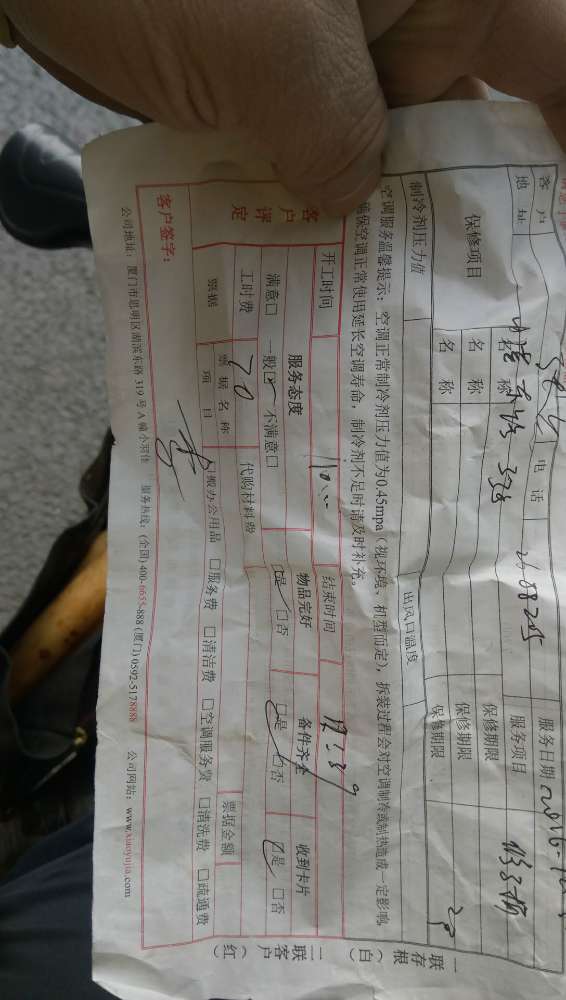 客户 电话 2688245 服务日期 2016-
地址 服务项目
保修项目 名称 保修期限
名称 保修期限
名称 保修期限
制冷剂压力值 出风口温度
空调服务温馨提示:空调正常制冷剂压力值为0.45mpa(视环境、机型而定),拆装过程会对空调制冷或制热造成一定影响
确保空调正常使用延长空调寿命,制冷剂不足时请及时补充。
开工时间 结束时间
客户评定 服务态度 物品完好 备件齐全 收到卡片
满意□ 一般□ 不满意□ □是 □否 □是 □否 □是 □否
工时费 70 代购材料费
票据 票据名称 票据金额
项目 搬办公用品 □服务费 □清洁费 □空调服务费 □清洗费 □疏通费
客户签字:
公司地址:厦门市思明区湖滨东路 319 号 A 幢小羽佳 服务热线:(全国)400-6655-888 (厦门) 0592-5178888 公司网站:www.xiaoyujia.com
一联存根(白)
二联客户(红)